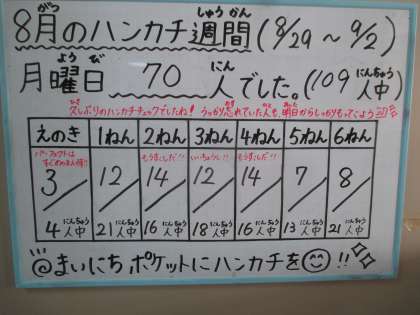 8月のハンカチ週間(8/29～9/2)
月曜日 70人でした。(109人中)
久しぶりのハンカチチェックでしたね! うっかり忘れていた人も、明日からしっかりもってこよう
えのき 1ねん 2ねん 3ねん 4ねん 5ねん 6ねん
もうすこし!! もうすこし!!
3 12 14 12 14 7 8
4人中 21人中 16人中 18人中 16人中 13人中 21人中
@まいにちポケットにハンカチを!!